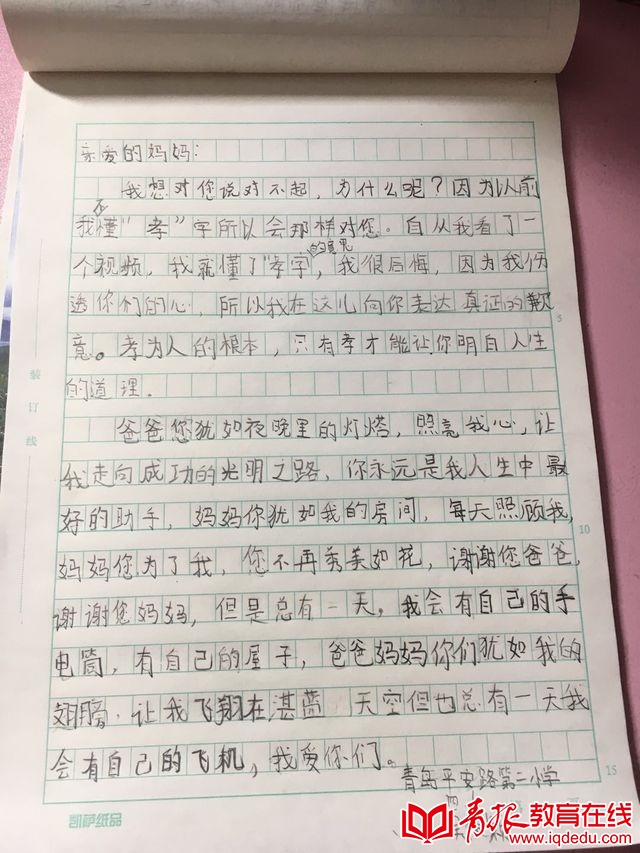 亲爱的妈妈:
我想对您说对不起,为什么呢?因为以前
我不懂“孝”字所以会那样对您。自从我看了一
个视频,我就懂了“孝字”的意思,我很后悔,因为我伤
透你们的心,所以我在这儿向你表达真证的歉
意。孝为人的根本,只有孝才能让你明白人生
的道理.
爸爸您犹如夜晚里的灯塔,照亮我心,让
我走向成功的光明之路,你永远是我人生中最
好的助手,妈妈你犹如我的房间,每天照顾我,
妈妈您为了我,您不再秀美如花,谢谢您爸爸,
谢谢您妈妈,但是总有一天,我会有自己的手
电筒,有自己的屋子,爸爸妈妈你们犹如我的
翅膀.让我飞翔在湛蓝 天空但也总有一天我
会有自己的飞机,我爱你们。
青岛平安路第二小学
装订线
5
10
15
凯萨纸品
青报教育在线
www.iqdedu.com